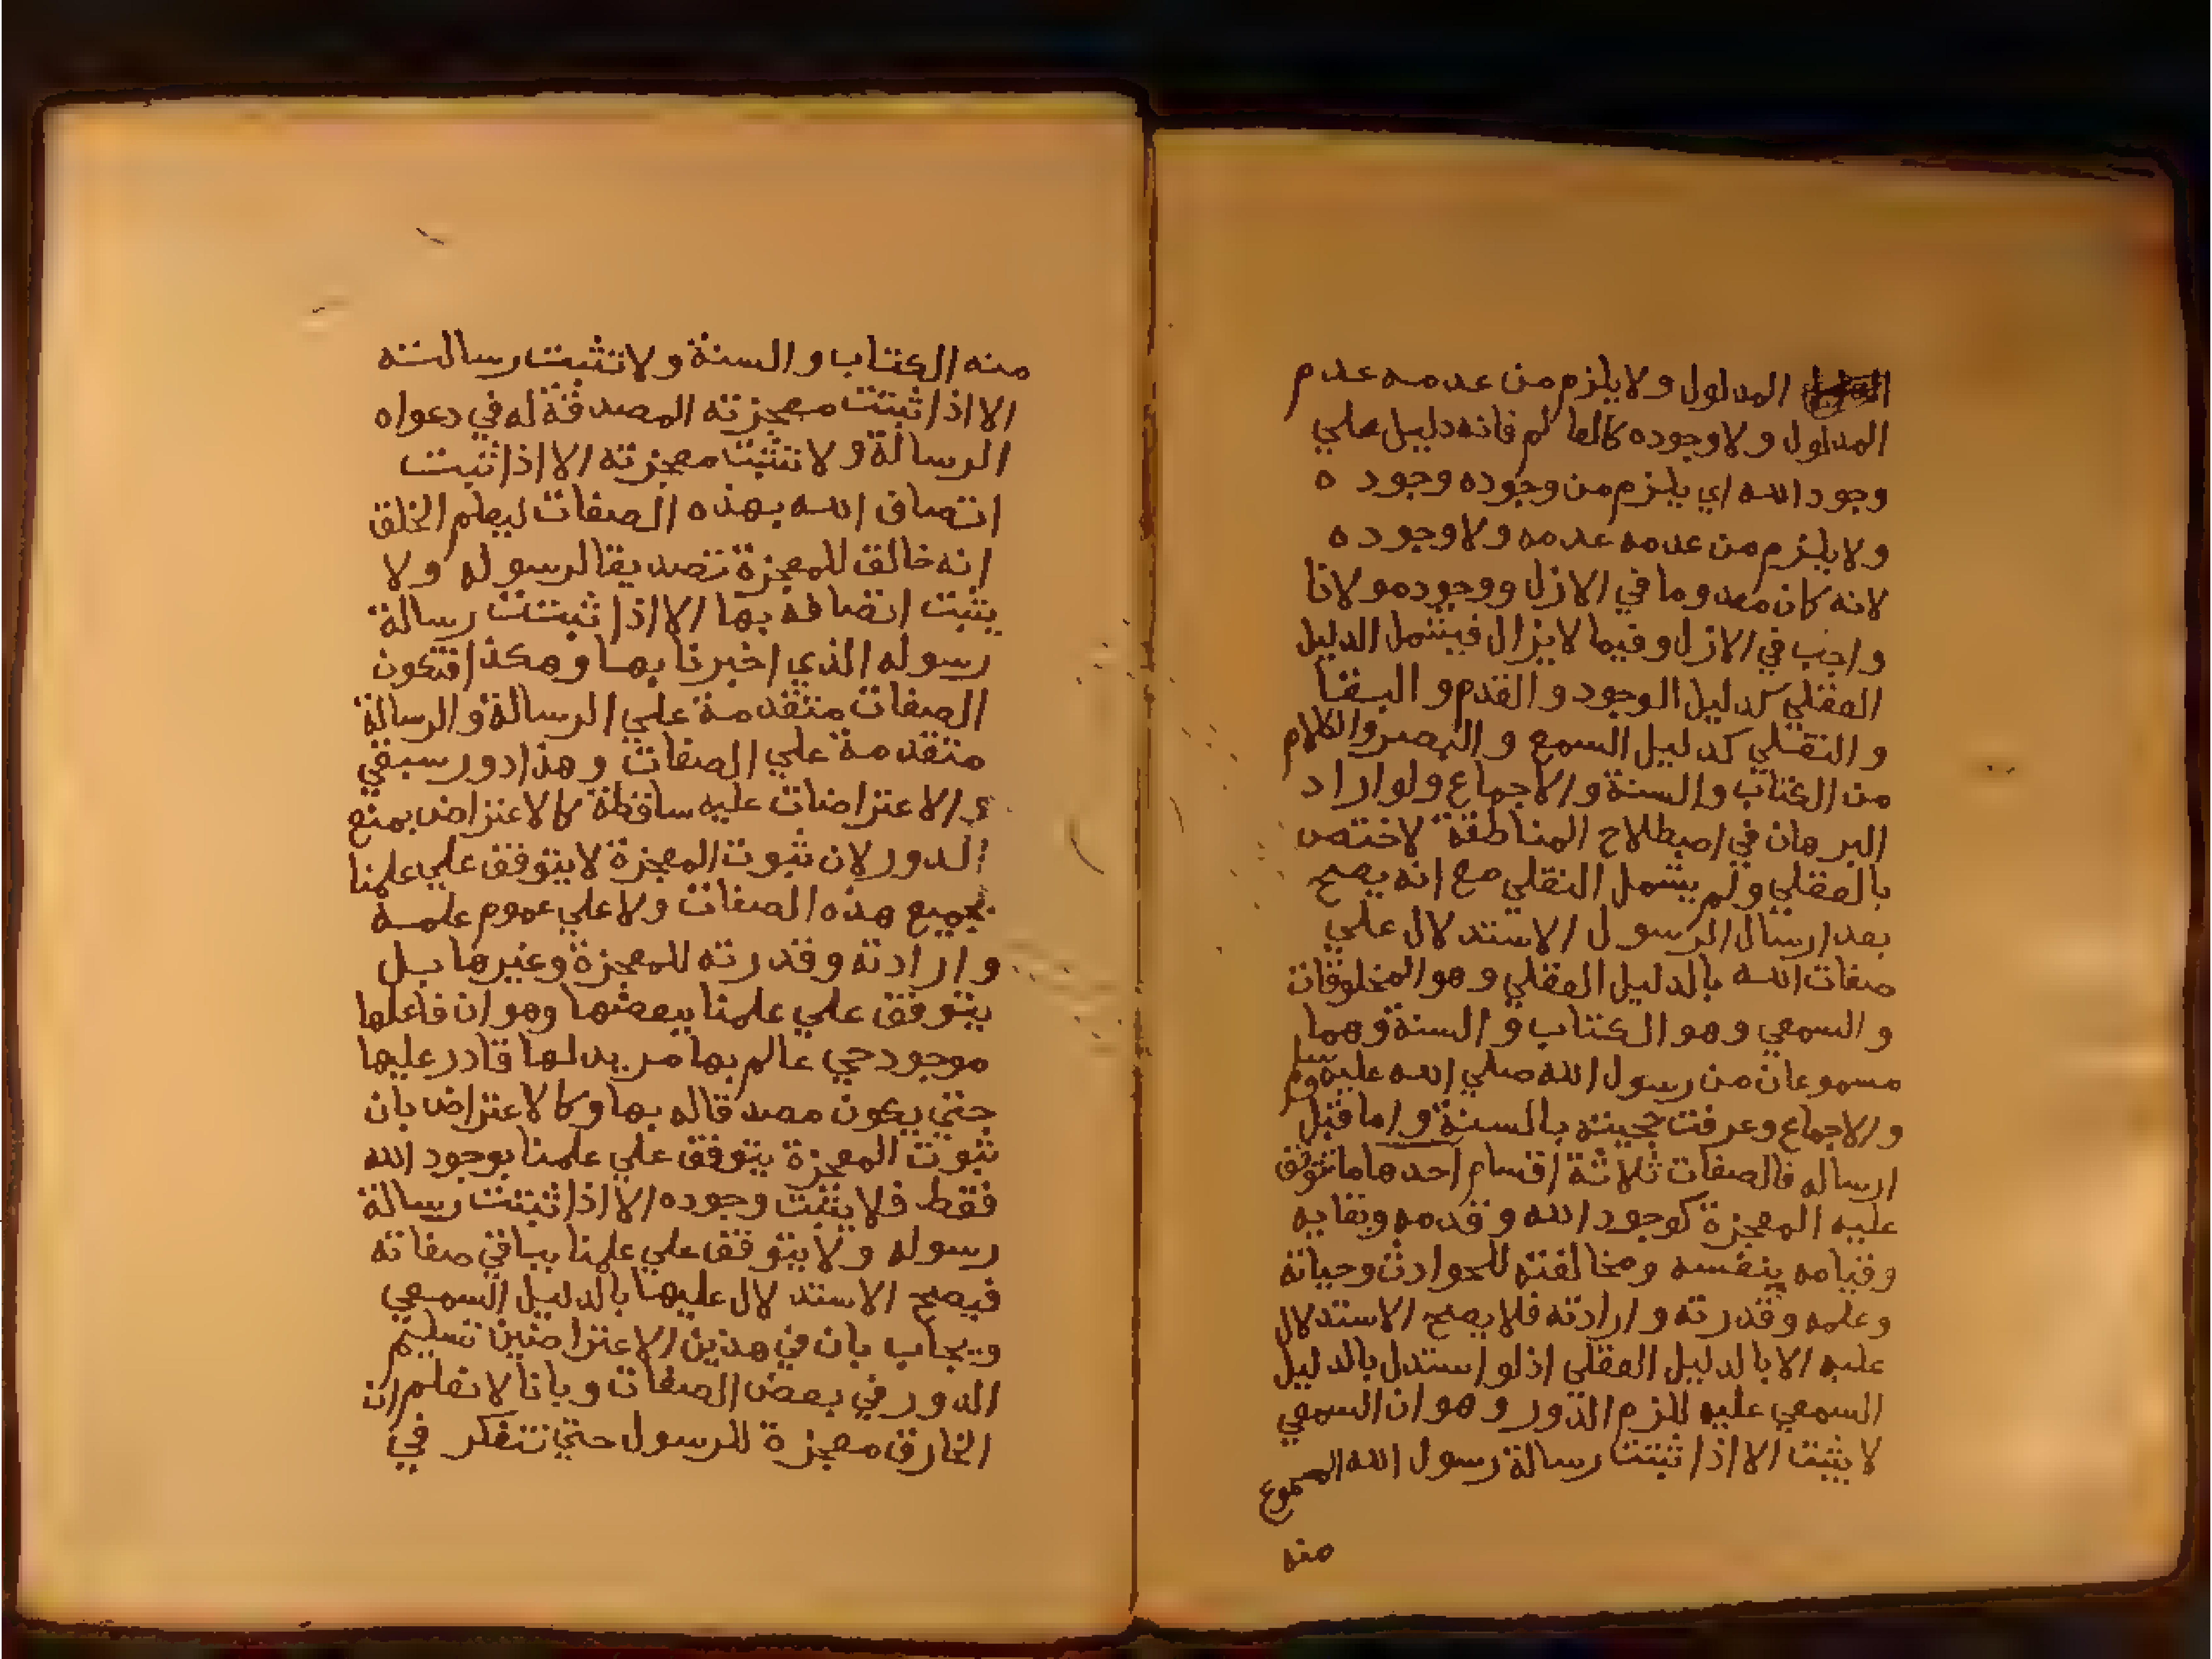 المدلول ولا يلزم من عدمه عدم
المدلول ولا وجوده كالعالم فانه دليل علي
وجود الله اي يلزم من وجوده وجوده
ولا يلزم من عدمه عدمه ولا وجوده
لانه كان معدوما في الازل ووجود مولانا
واجب في الازل وفيما لا يزال فيشمل الدليل
العقلي كدليل الوجود والقدم والبقا
والنقلي كدليل السمع والبصر والكلام
من الكتاب والسنة والاجماع ولو اراد
البرهان في اصطلاح المناطقة لاختص
بالعقلي ولم يشمل النقلي مع انه يصح
بعد ارسال الرسول الاستدلال علي
صفات الله بالدليل العقلي وهو المخلوقات
والسمعي وهو الكتاب والسنة وهما
مسموعان من رسول الله صلي الله عليه وسلم
والاجماع وعرفت حجيته بالسنة واما قبل
ارساله فالصفات ثلاثة اقسام احدها ما تتوقف
عليه المعجزة كوجود الله وقدمه وبقايه
وقيامه بنفسه ومخالفته للحوادث وحياته
وعلمه وقدرته وارادته فلا يصح الاستدلال
عليه الا بالدليل العقلي اذ لو استدل بالدليل
السمعي عليه للزم الدور وهو ان السمعي
لا يثبت الا اذا ثبتت رسالة رسول الله المسموع
منه
منه الكتاب والسنة ولا تثبت رسالته
الا اذا ثبتت معجزته المصدقة له في دعواه
الرسالة ولا تثبت معجزته الا اذا ثبت
اتصاف الله بهذه الصفات ليعلم الخلق
انه خالق للمعجزة تصديقا لرسوله ولا
يثبت اتصافه بها الا اذا ثبتت رسالة
رسوله الذي اخبرنا بها وهكذا فتكون
الصفات متقدمة علي الرسالة والرسالة
متقدمة علي الصفات وهذا دور سبقي
والاعتراضات عليه ساقطة كالاعتراض بمنع
الدور لان ثبوت المعجزة لا يتوقف علي علمنا
بجميع هذه الصفات ولا علي عموم علمه
وارادته وقدرته للمعجزة وغيرها بل
يتوقف علي علمنا ببعضها وهو ان فاعلها
موجود حي عالم بها مريد لها قادر عليها
حتي يكون مصدقا له بها وكالاعتراض بان
ثبوت المعجزة يتوقف علي علمنا بوجود الله
فقط فلا يثبت وجوده الا اذا ثبتت رسالة
رسوله ولا يتوقف علي علمنا بباقي صفاته
فيصح الاستدلال عليها بالدليل السمعي
ويجاب بان في هذين الاعتراضين تسليم
الدور في بعض الصفات وبانا لا نعلم ان
الخارق معجزة للرسول حتي نتفكر في